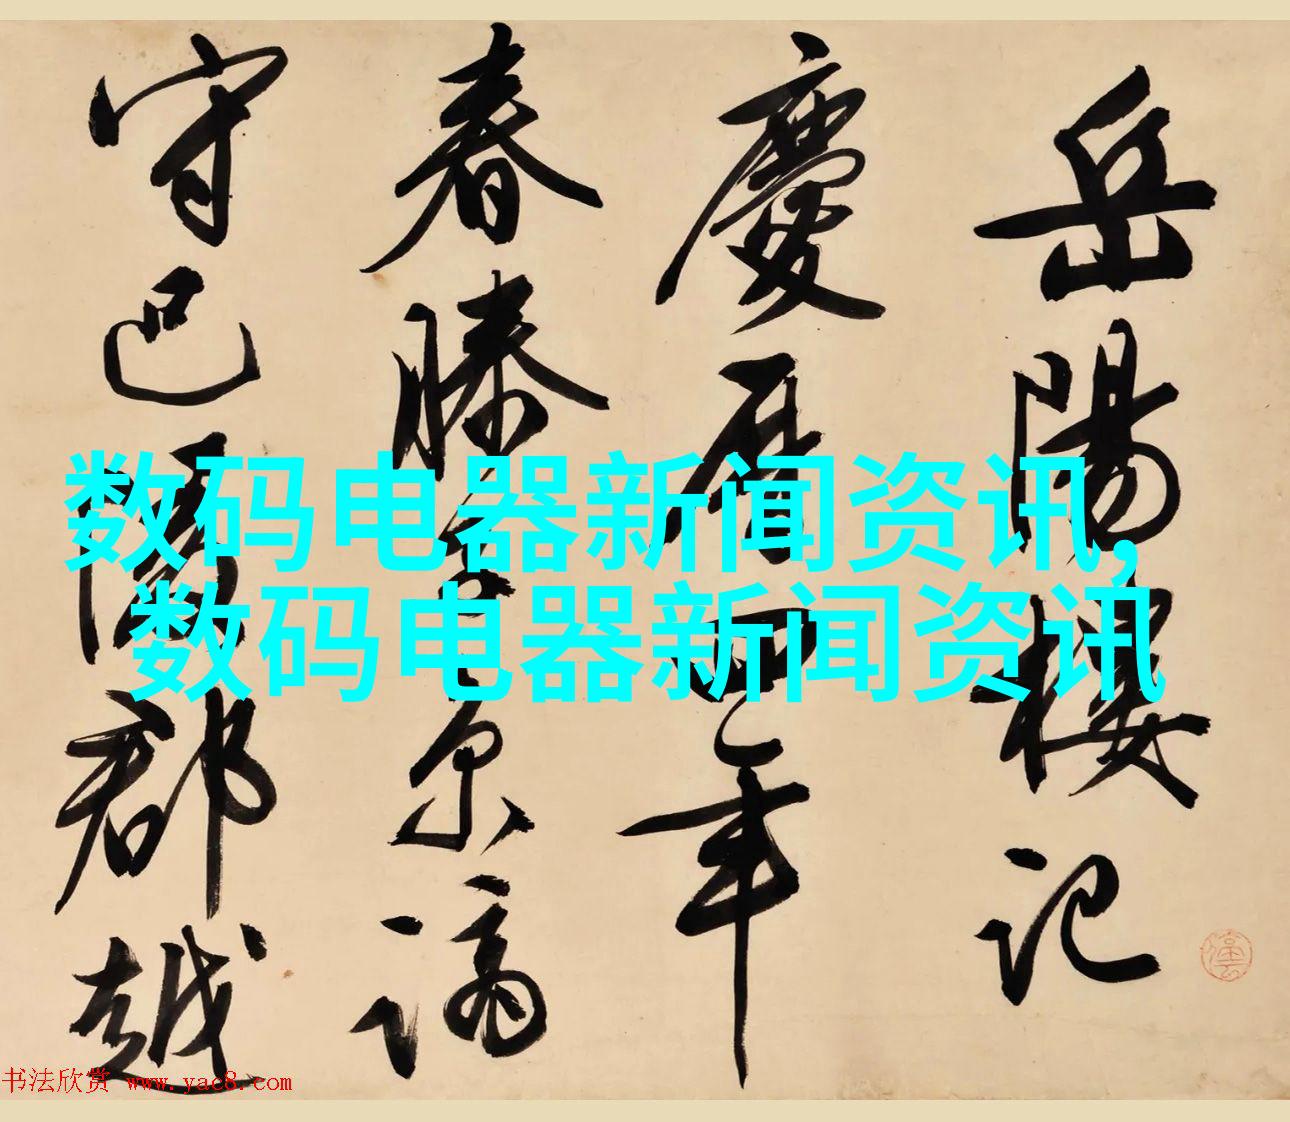 岳陽樓記
慶曆四年
春滕子京謫
守巴陵郡越
数码电器新闻资讯,
数码电器新闻资讯
书法欣赏 www.yac8.com